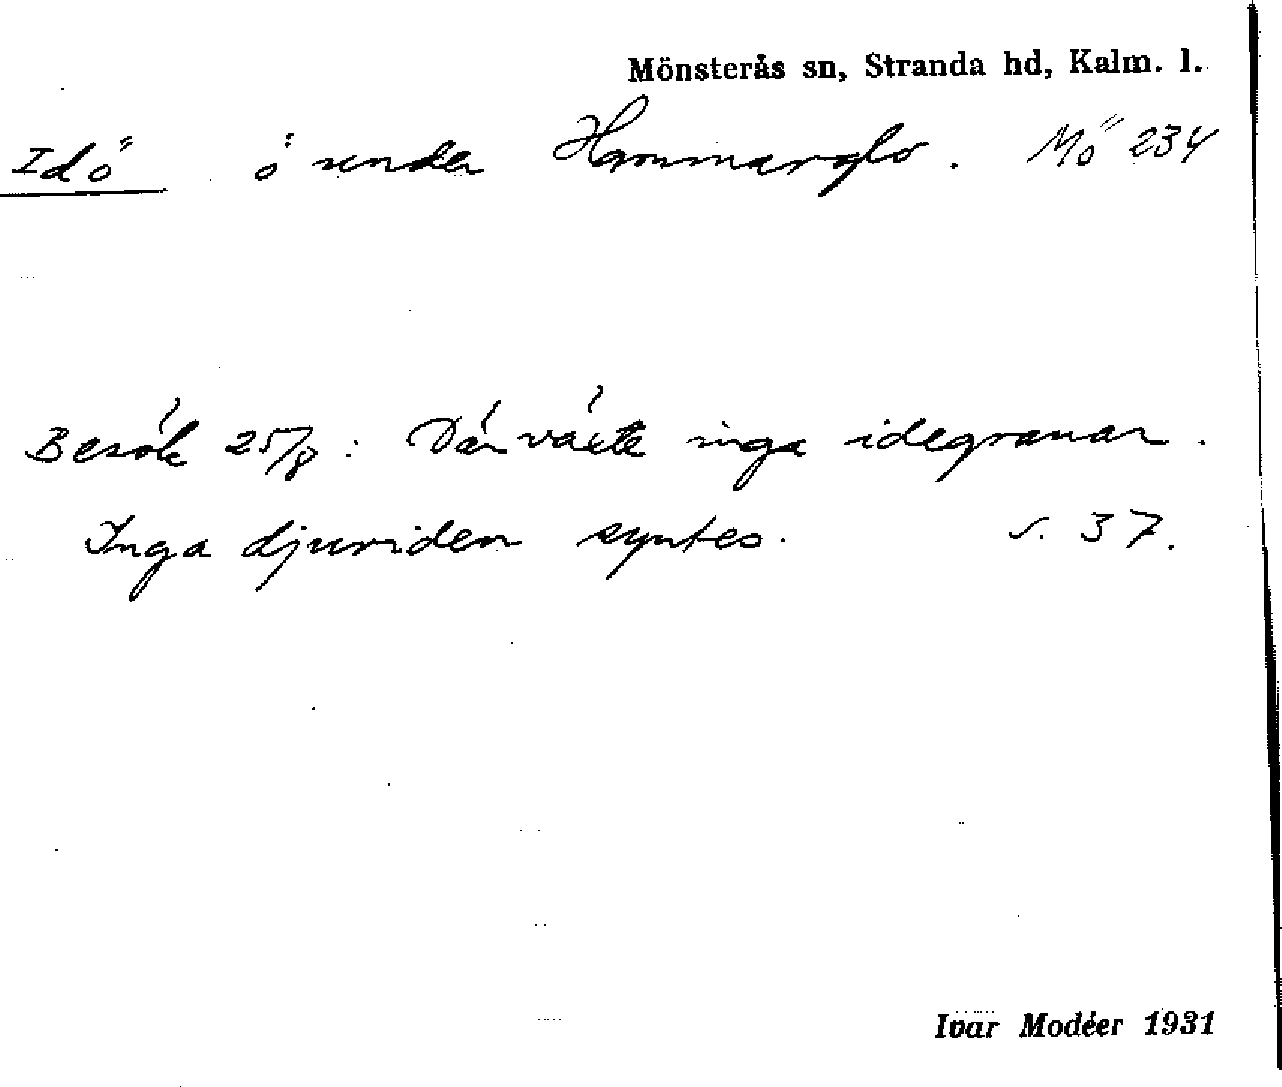 Mönsterås sn, Stranda hd, Kalm. l.
Idö ö under Hammarglo. Mö 234
Besök 25/8: Där växte inga idegranar.
Inga djuriden syntes. s. 37.
Ivar Modéer 1931